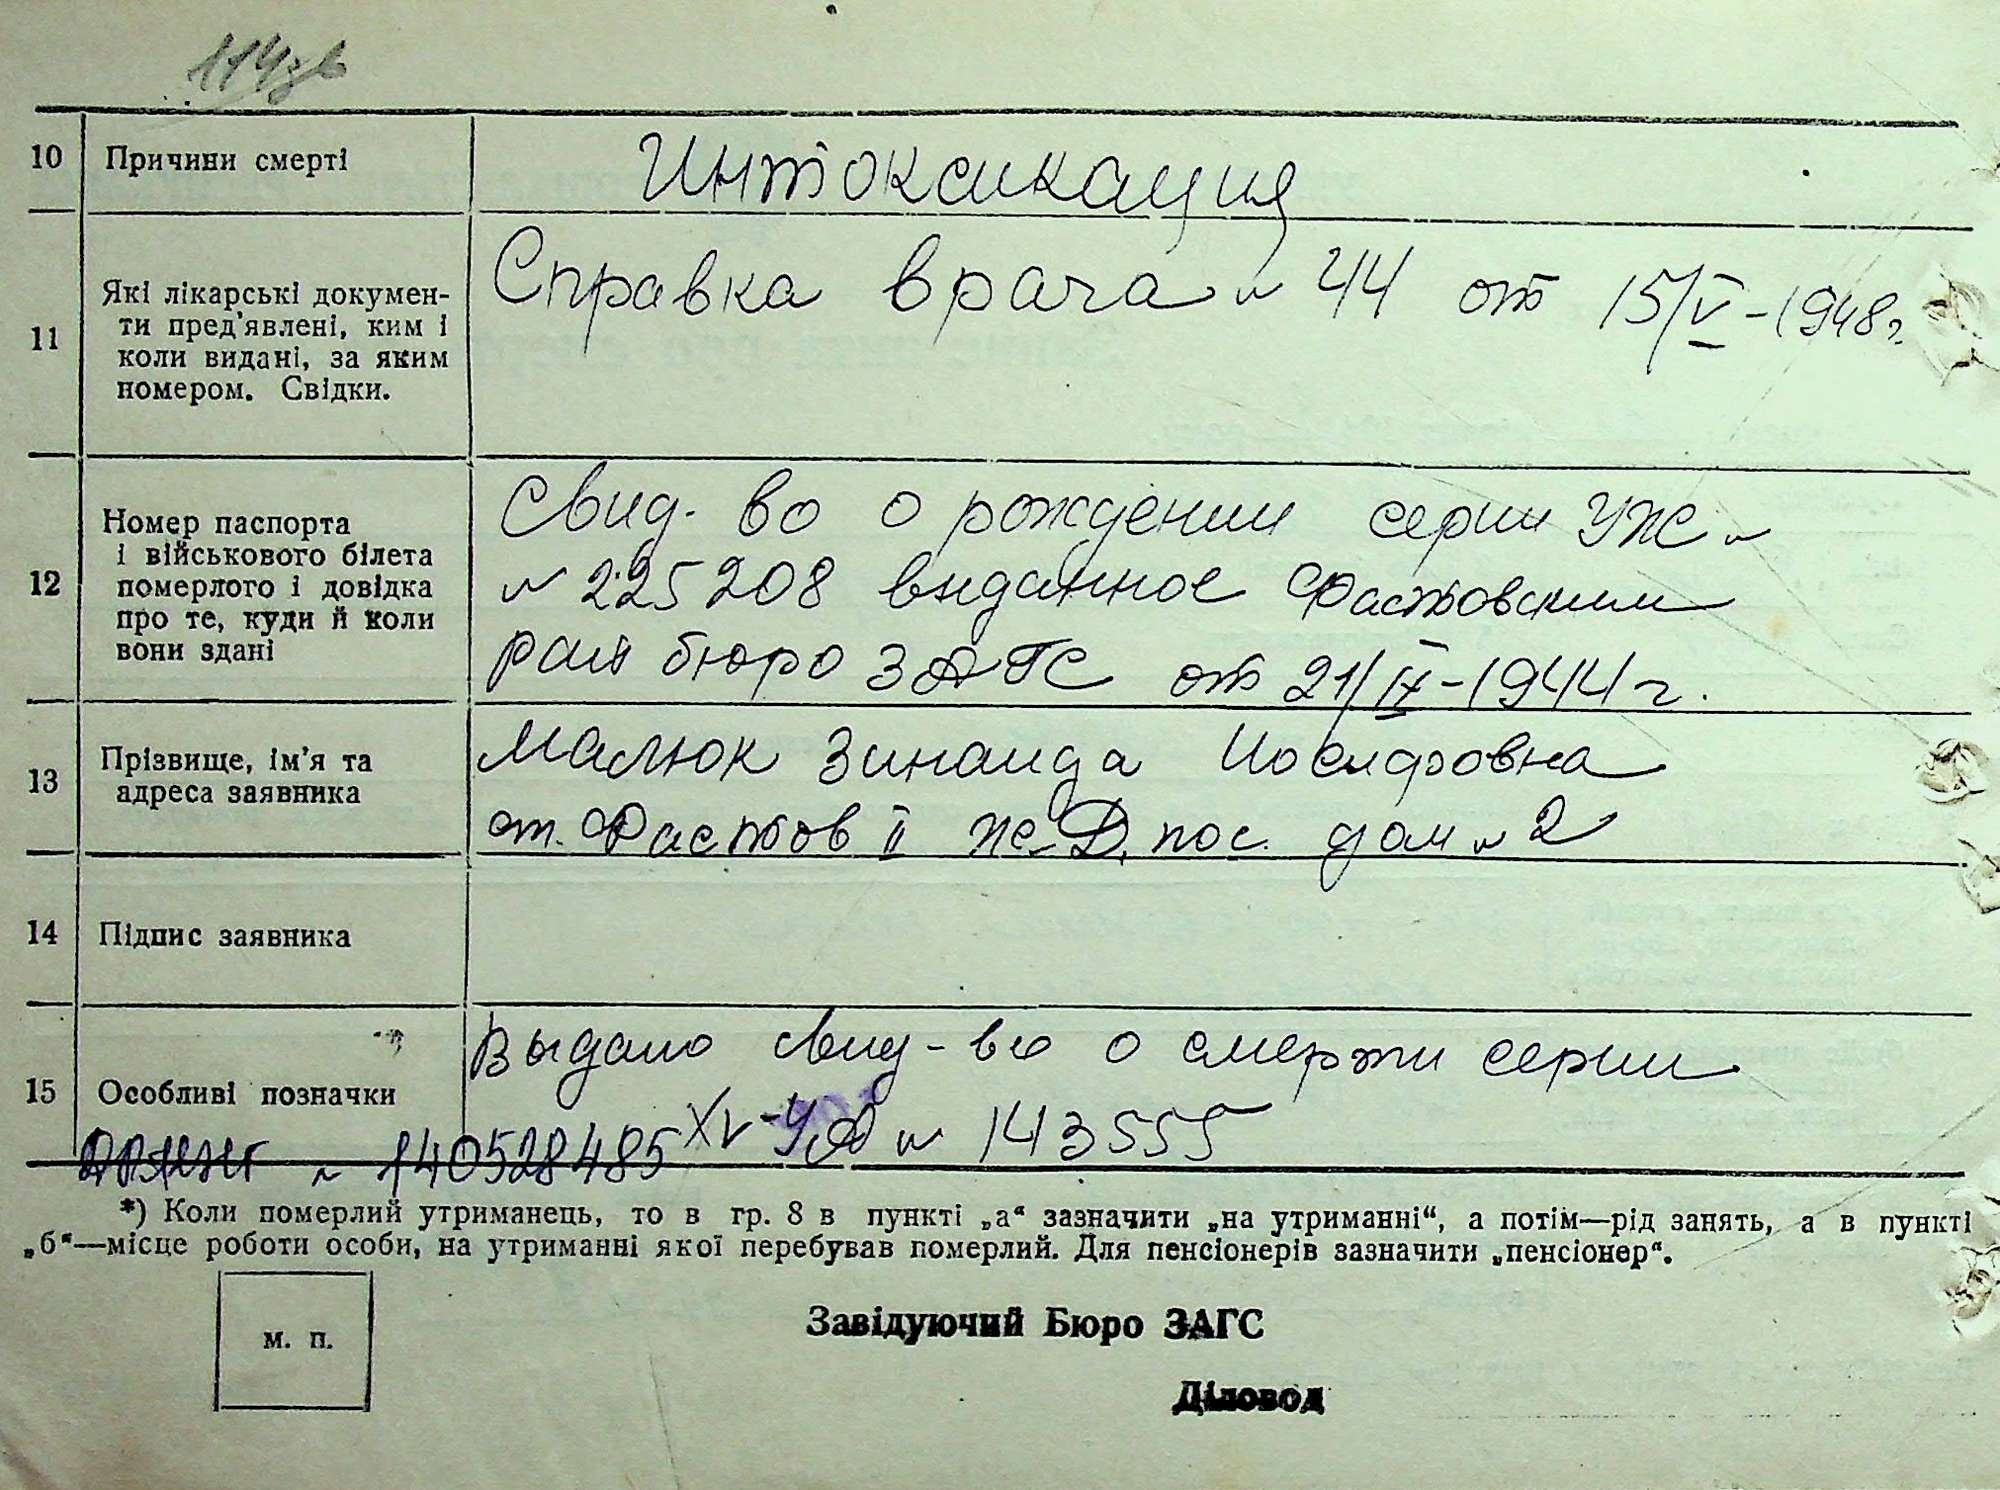 114зв
10 Причини смерті Интоксикация
11 Які лікарські докумен-
ти пред'явлені, ким і
коли видані, за яким
номером. Свідки.
Справка врача № 44 от 15/V-1948 г.
12 Номер паспорта
і військового білета
померлого і довідка
про те, куди й коли
вони здані
Свид-во о рождении серии УЖ
№ 225208 виданное Фастовским
рай бюро ЗАГС от 21/IX-1944 г.
13 Прізвище, ім'я та
адреса заявника
Малюк Зинаида Иосифовна
ст. Фастов II ж-Д. пос. дом № 2
14 Підпис заявника
15 Особливі позначки
Выдано свид-во о смерти серии
XV-УЯ № 143555
№ 140528485
*) Коли померлий утриманець, то в гр. 8 в пункті „а“ зазначити „на утриманні“, а потім—рід занять, а в пункті
„б“—місце роботи особи, на утриманні якої перебував померлий. Для пенсіонерів зазначити „пенсіонер“.
м. п.
Завідуючий Бюро ЗАГС
Діловод